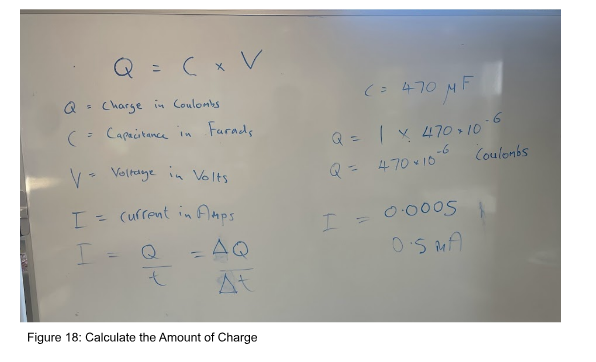 Q = C x V
Q = Charge in Coulombs
C = Capacitance in Farads
V = Voltage in Volts
I = Current in Amps
I = Q/t = ΔQ/Δt
C = 470 μF
Q = 1 x 470 x 10^-6
Q = 470 x 10^-6 Coulombs
I = 0.0005
0.5 mA
Figure 18: Calculate the Amount of Charge